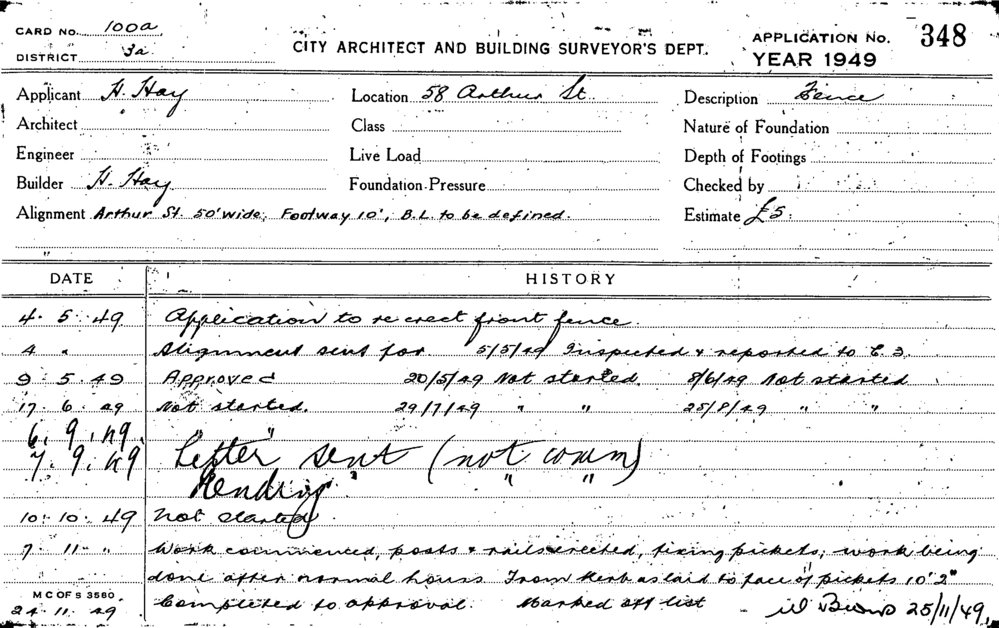 CARD NO. 100a
DISTRICT 3a
CITY ARCHITECT AND BUILDING SURVEYOR'S DEPT.
APPLICATION NO. 348
YEAR 1949
Applicant H. Hay Location 58 Arthur St. Description Fence
Architect Class Nature of Foundation
Engineer Live Load Depth of Footings
Builder H. Hay Foundation Pressure Checked by
Alignment Arthur St. 50' wide; Footway 10', B.L. to be defined. Estimate £5.
DATE HISTORY
4. 5. 49 Application to re erect front fence.
4 " Alignment sent for. 5/5/49 Inspected & reported to
9. 5. 49 Approved 20/5/49 Not started. 8/6/49 Not started
17. 6. 49 Not started. 29/7/49 " " 25/8/49 " "
6. 9. 49. " "
7. 9. 49 Letter sent (not comm)
Pending " " "
10. 10. 49 Not started
7. 11 " Work commenced, posts & rails erected, fixing pickets; work being
done after normal hours. From kerb as laid to face of pickets 10' 2"
M C OF S 3580
24. 11. 49 Completed to approval. Marked off list 25/11/49.